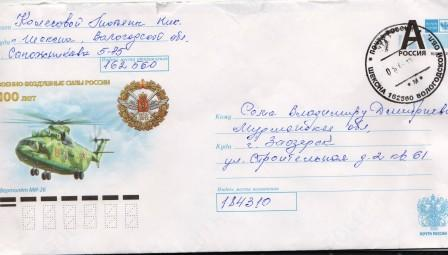 Колесовой
г. Шексна, Вологодской обл.
Сапожникова 5-75
162560
ВОЕННО-ВОЗДУШНЫЕ СИЛЫ РОССИИ
100 лет
Вертолёт МИ-26
А
РОССИЯ
ПОЧТА РОССИИ
ШЕКСНА 162560 ВОЛОГОДСКОЙ
Кому
Владимиру Дмитриевичу
Мурманская обл,
Куда
г. Заозерск
ул. Строительная д-2 кв 61
Индекс места назначения
184310
ПОЧТА РОССИИ